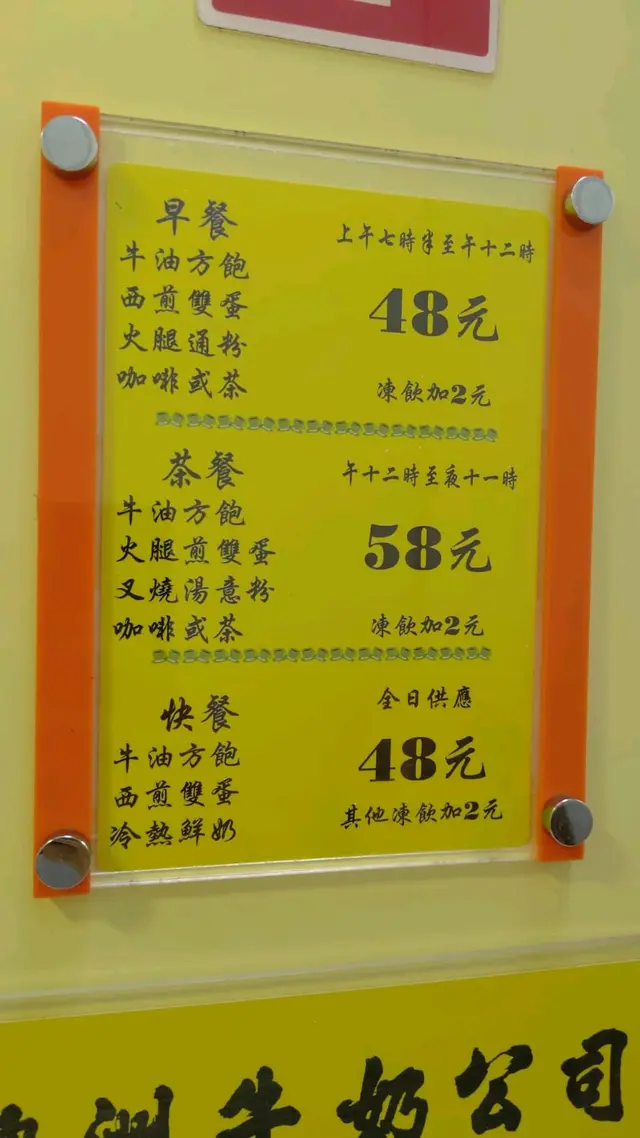 早餐
上午七時半至午十二時
牛油方飽
西煎雙蛋
48元
火腿通粉
咖啡或茶
凍飲加2元
茶餐
午十二時至夜十一時
牛油方飽
火腿煎雙蛋
58元
叉燒湯意粉
咖啡或茶
凍飲加2元
快餐
全日供應
牛油方飽
48元
西煎雙蛋
其他凍飲加2元
冷熱鮮奶
洲牛奶公司